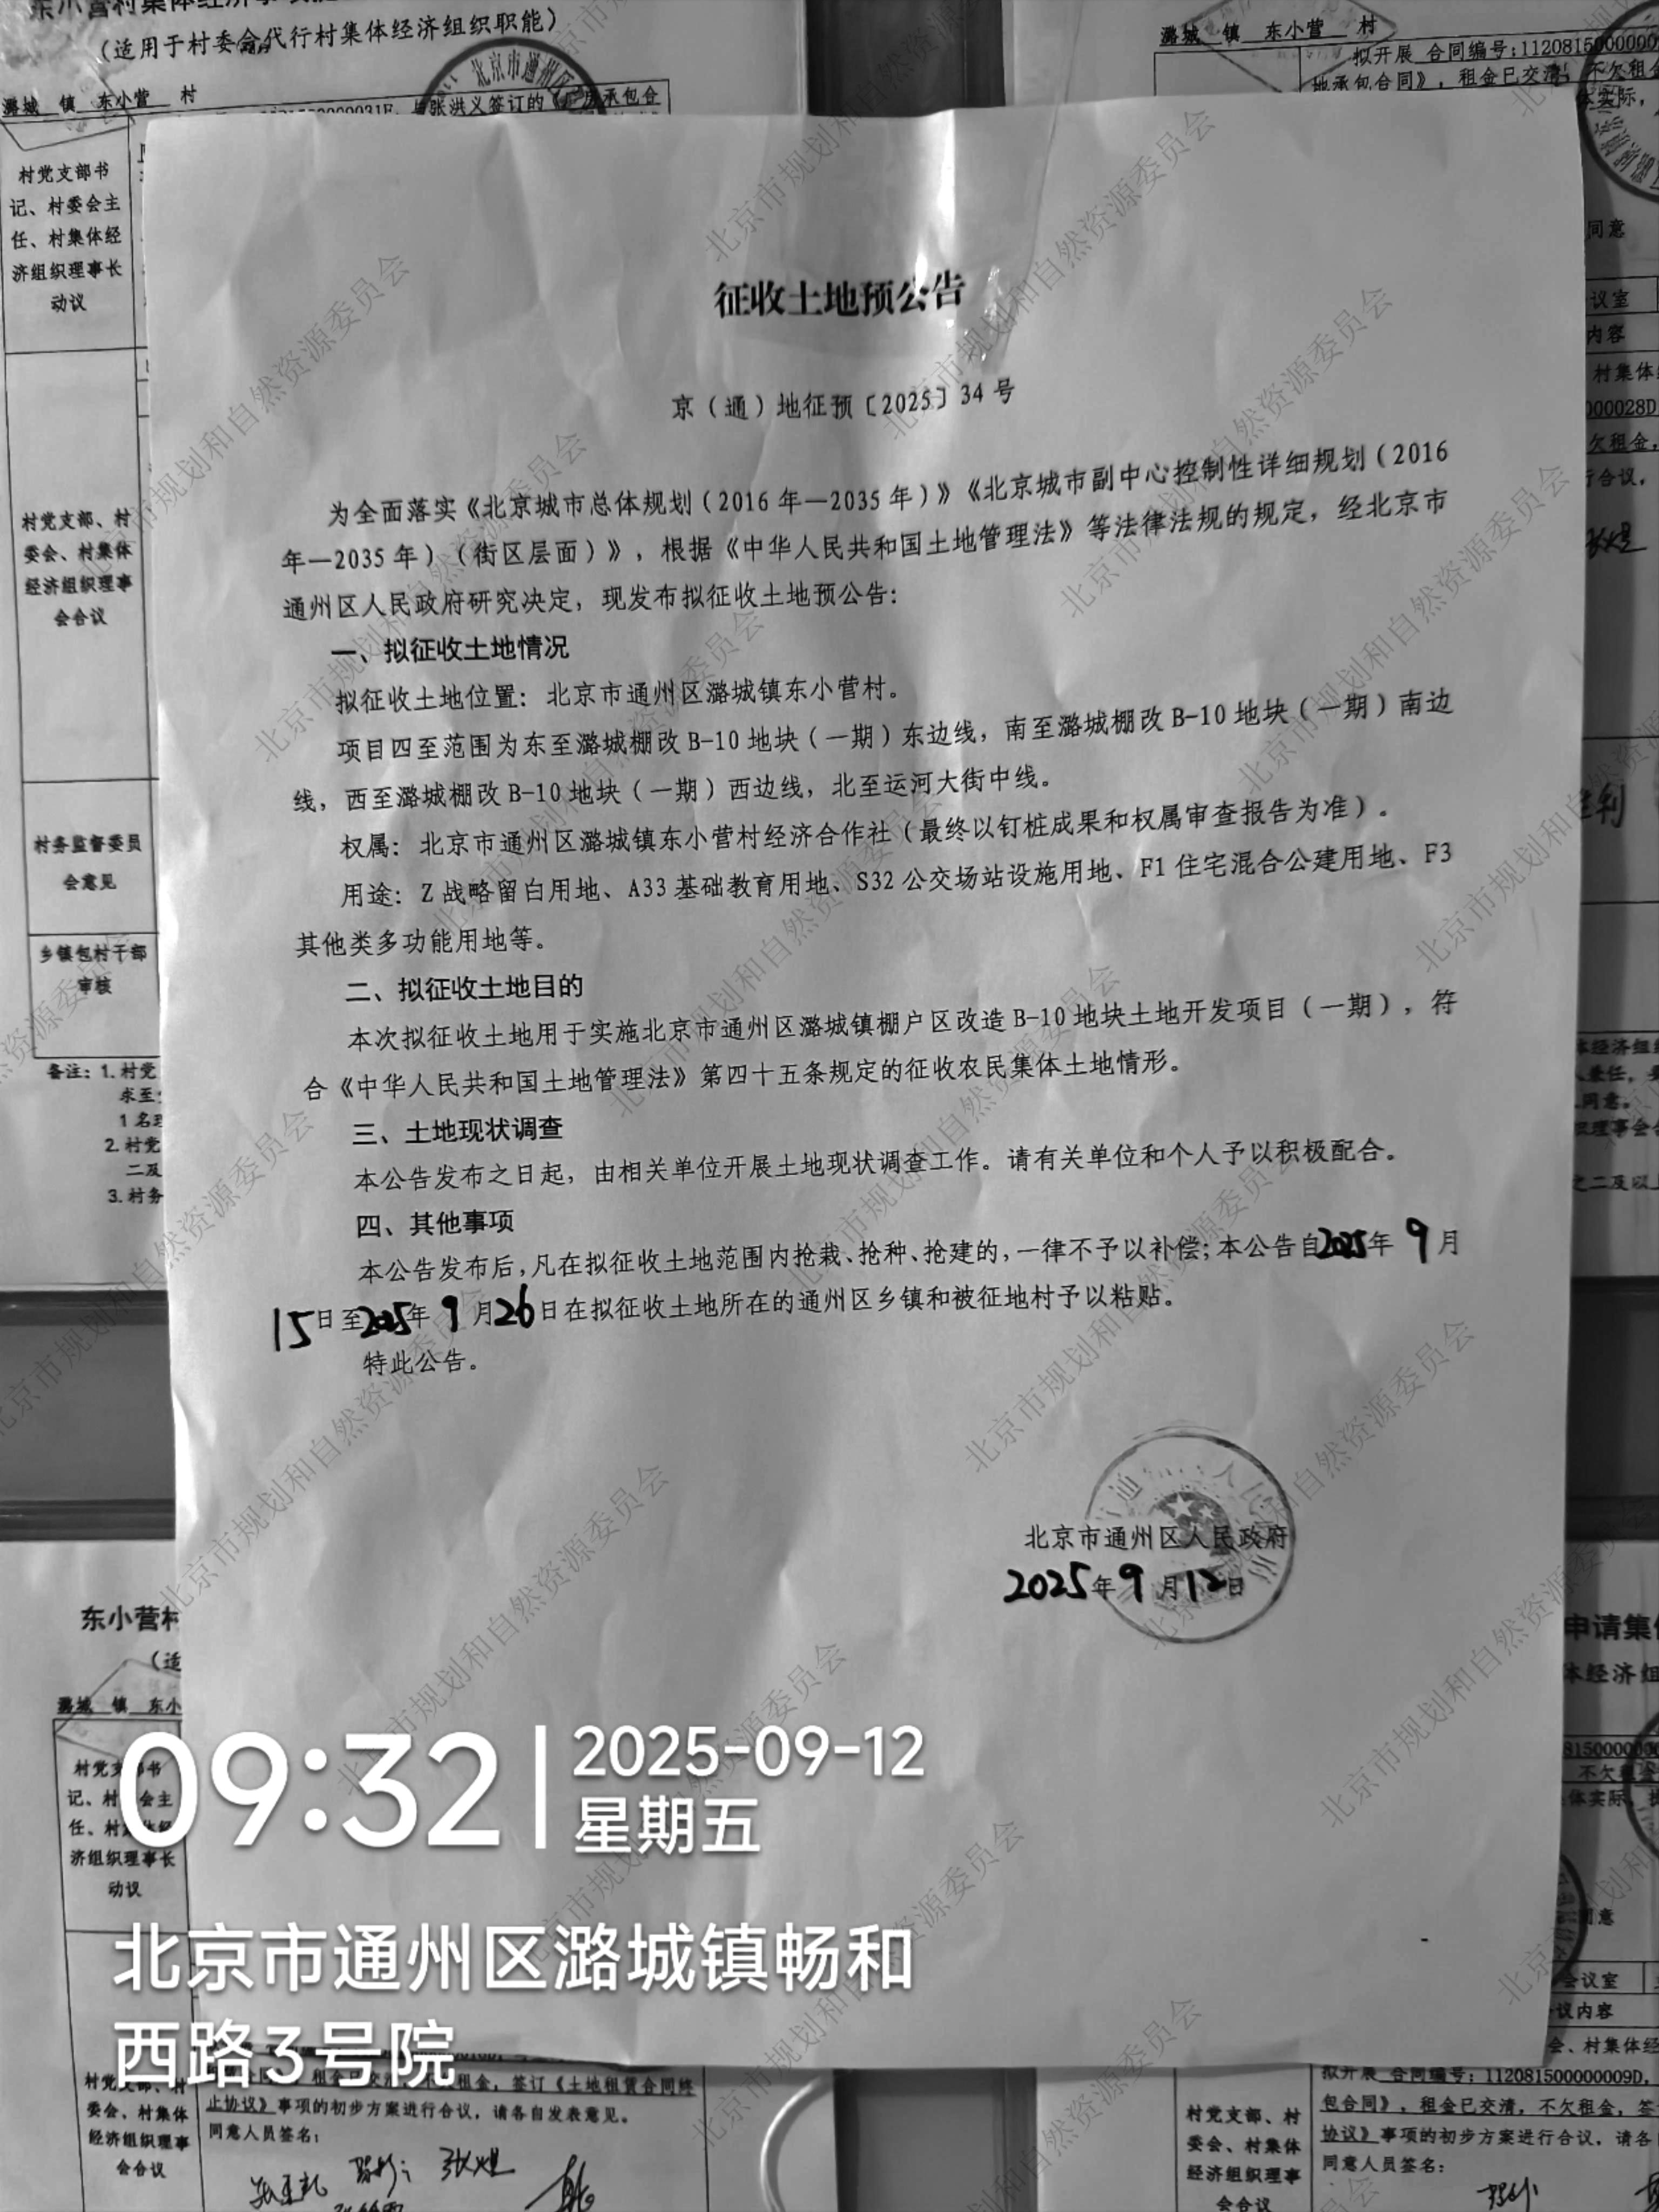 （适用于村委会代行村集体经济组织职能）
潞城 镇 东小营 村
张洪义签订的
村党支部书
记、村委会主
任、村集体经
济组织理事长
动议
村党支部、村
委会、村集体
经济组织理事
会合议
村务监督委员
会意见
乡镇包村干部
审核
备注：1.村党
求至
1名
2.村党
二及
3.村务
潞城 镇 东小营 村
拟开展 合同编号:1120815000000
地承包合同》，租金已交清，不欠租金
同意
议室
内容
村集体
000028D
欠租金，
合议，
征收土地预公告
京（通）地征预〔2025〕34号
为全面落实《北京城市总体规划（2016年—2035年）》《北京城市副中心控制性详细规划（2016
年—2035年）（街区层面）》，根据《中华人民共和国土地管理法》等法律法规的规定，经北京市
通州区人民政府研究决定，现发布拟征收土地预公告：
一、拟征收土地情况
拟征收土地位置：北京市通州区潞城镇东小营村。
项目四至范围为东至潞城棚改B-10地块（一期）东边线，南至潞城棚改B-10地块（一期）南边
线，西至潞城棚改B-10地块（一期）西边线，北至运河大街中线。
权属：北京市通州区潞城镇东小营村经济合作社（最终以钉桩成果和权属审查报告为准）。
用途：Z战略留白用地、A33基础教育用地、S32公交场站设施用地、F1住宅混合公建用地、F3
其他类多功能用地等。
二、拟征收土地目的
本次拟征收土地用于实施北京市通州区潞城镇棚户区改造B-10地块土地开发项目（一期），符
合《中华人民共和国土地管理法》第四十五条规定的征收农民集体土地情形。
三、土地现状调查
本公告发布之日起，由相关单位开展土地现状调查工作。请有关单位和个人予以积极配合。
四、其他事项
本公告发布后，凡在拟征收土地范围内抢栽、抢种、抢建的，一律不予以补偿；本公告自2025年9月
15日至2025年9月26日在拟征收土地所在的通州区乡镇和被征地村予以粘贴。
特此公告。
北京市通州区人民政府
2025年9月12日
北京市规划和自然资源委员会
09:32
2025-09-12
星期五
北京市通州区潞城镇畅和
西路3号院
东小营村
潞城 镇 东小
村党支部书
记、村委会主
任、村集体经
济组织理事长
动议
村党支部、村
委会、村集体
经济组织理事
会合议
租金已交清，不欠租金，签订《土地租赁合同终
止协议》事项的初步方案进行合议，请各自发表意见。
同意人员签名：
申请集体
会议室
议内容
会、村集体经
拟开展 合同编号：112081500000009D，
包合同》，租金已交清，不欠租金，签
协议》事项的初步方案进行合议，请各
同意人员签名：
村党支部、村
委会、村集体
经济组织理事
会合议